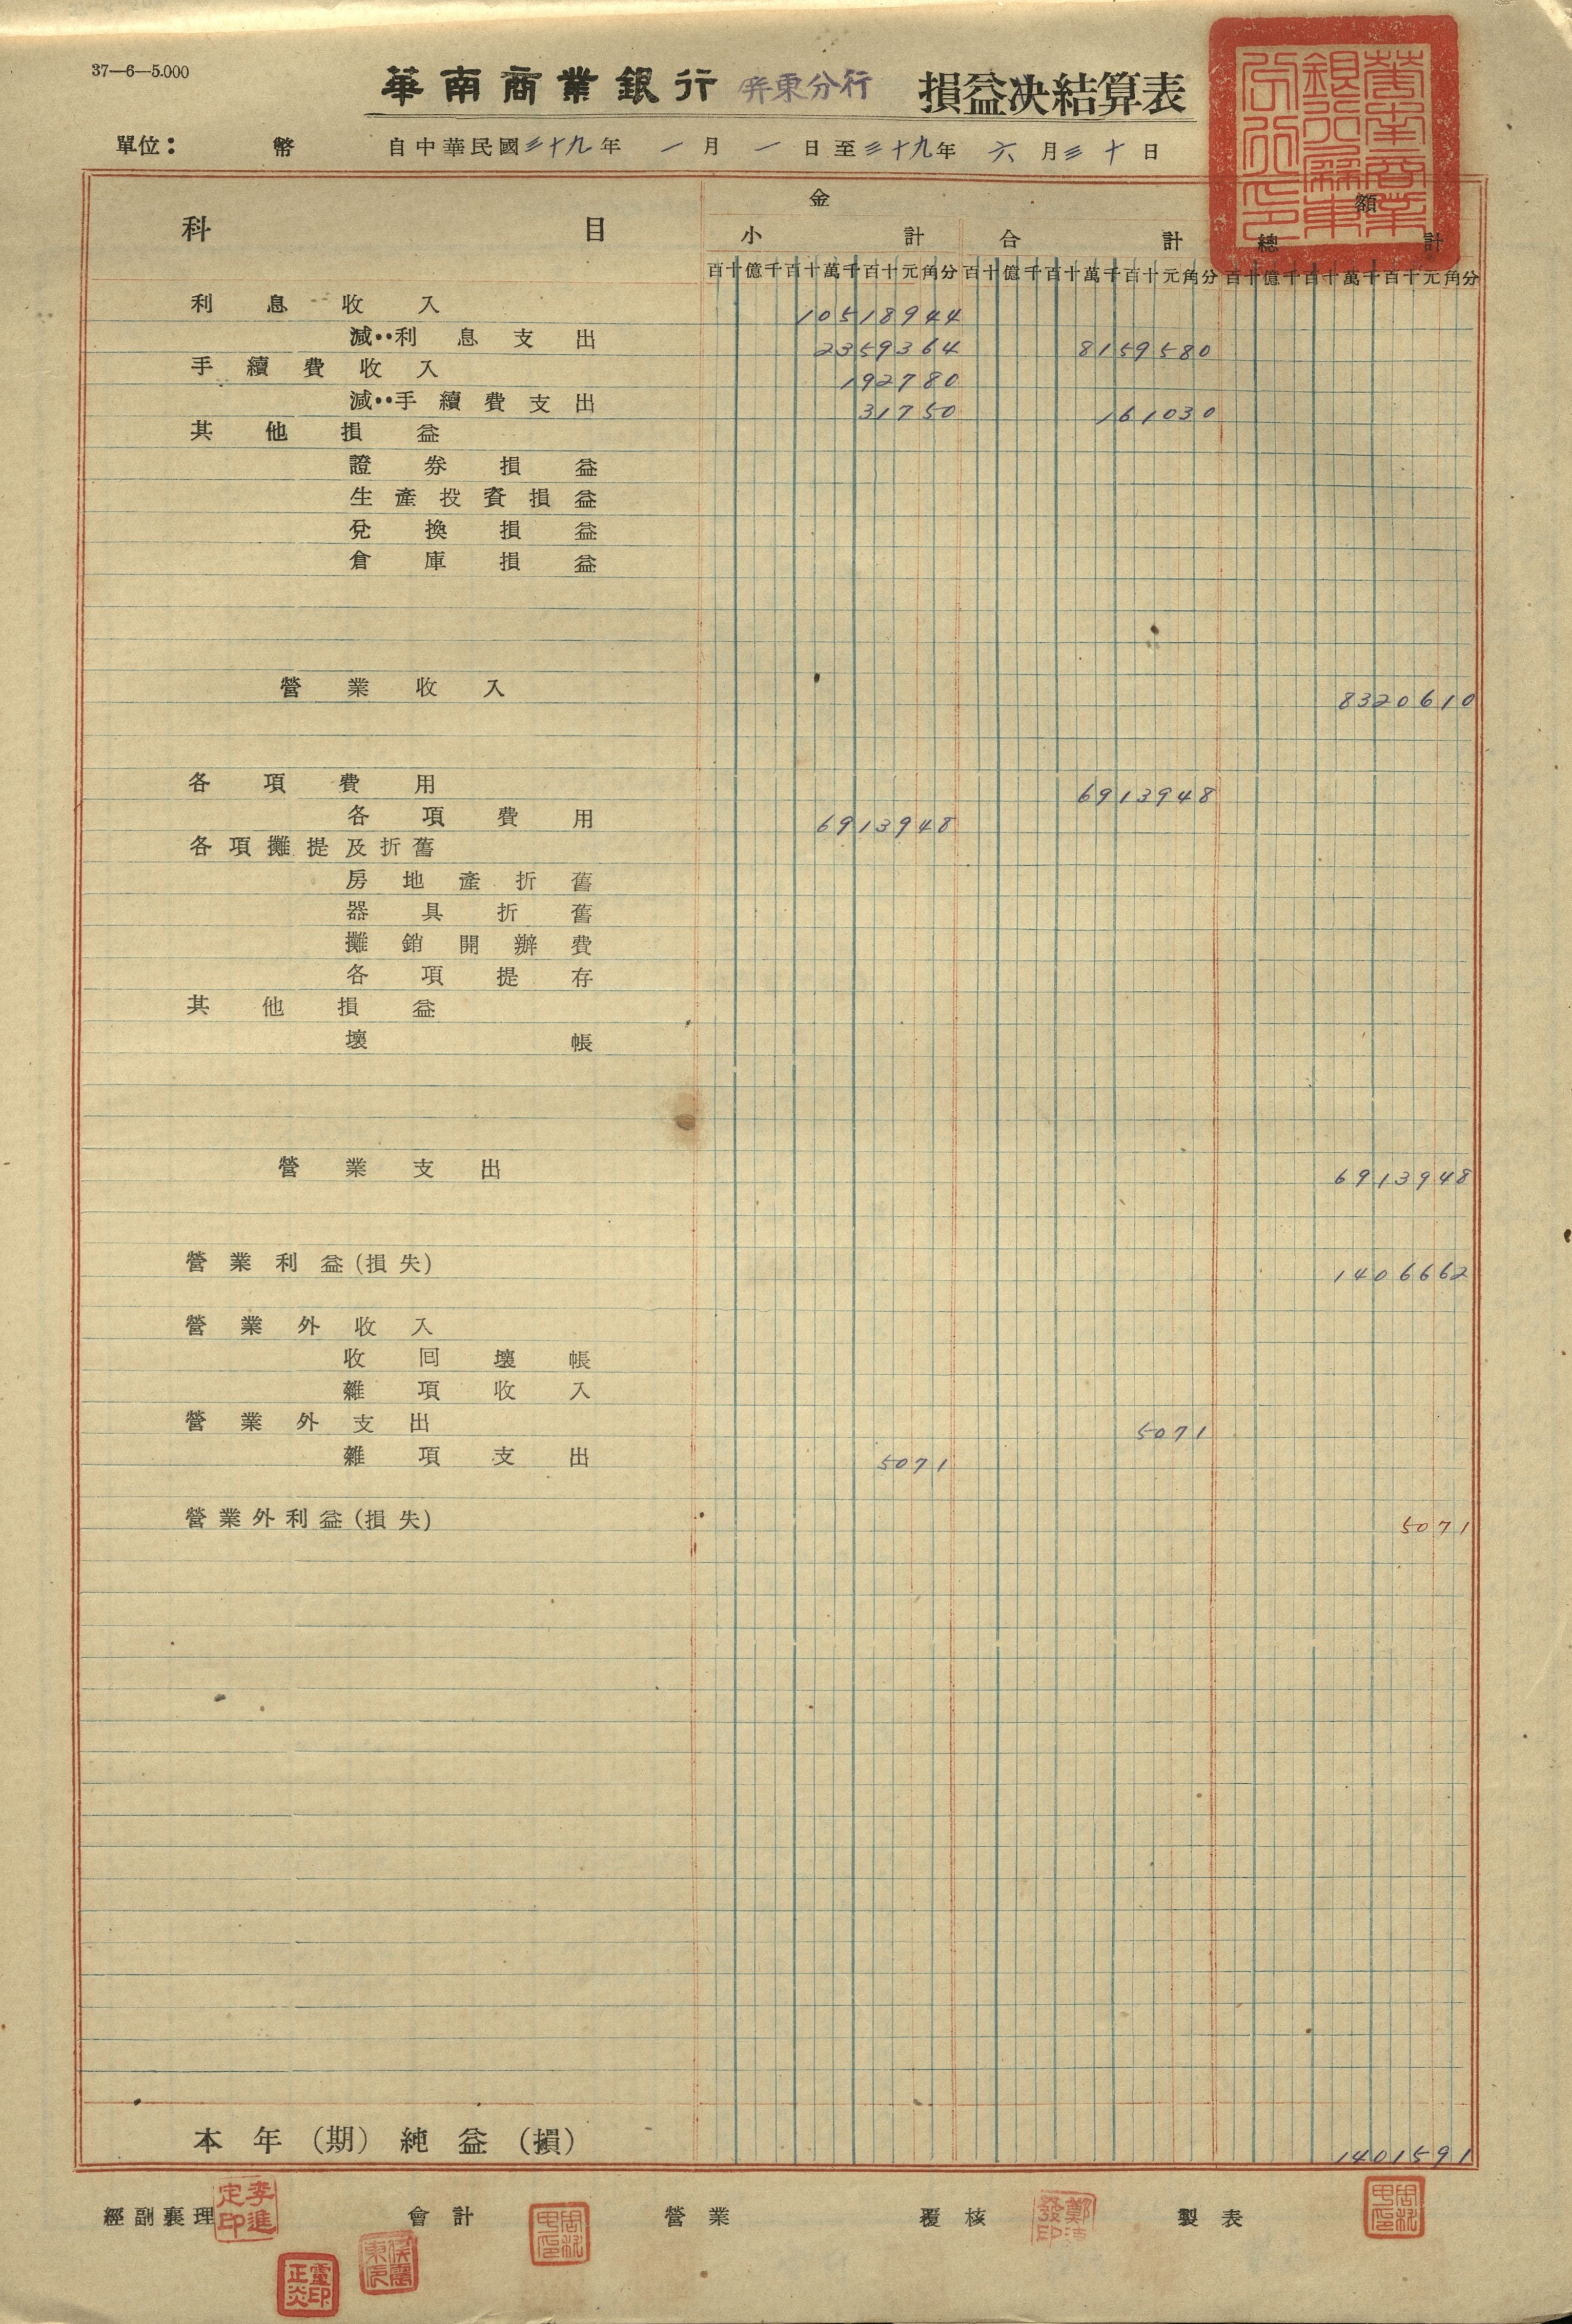 37—6—5.000
華南商業銀行 屏東分行 損益決結算表
單位： 幣 自中華民國三十九年 一月 一日至三十九年 六月三十日
科目 金額
小計 合計 總計
百十億千百十萬千百十元角分 百十億千百十萬千百十元角分 百十億千百十萬千百十元角分
利息收入 10518944
減‥利息支出 2359364 8159580
手續費收入 192780
減‥手續費支出 31750 161030
其他損益
證券損益
生產投資損益
兌換損益
倉庫損益
營業收入 8320610
各項費用 6913948
各項費用 6913948
各項攤提及折舊
房地產折舊
器具折舊
攤銷開辦費
各項提存
其他損益
壞帳
營業支出 6913948
營業利益(損失) 1406662
營業外收入
收回壞帳
雜項收入
營業外支出 5071
雜項支出 5071
營業外利益(損失) 5071
本年(期)純益(損) 1401591
經副襄理 李進定印 會計 營業 覆核 製表